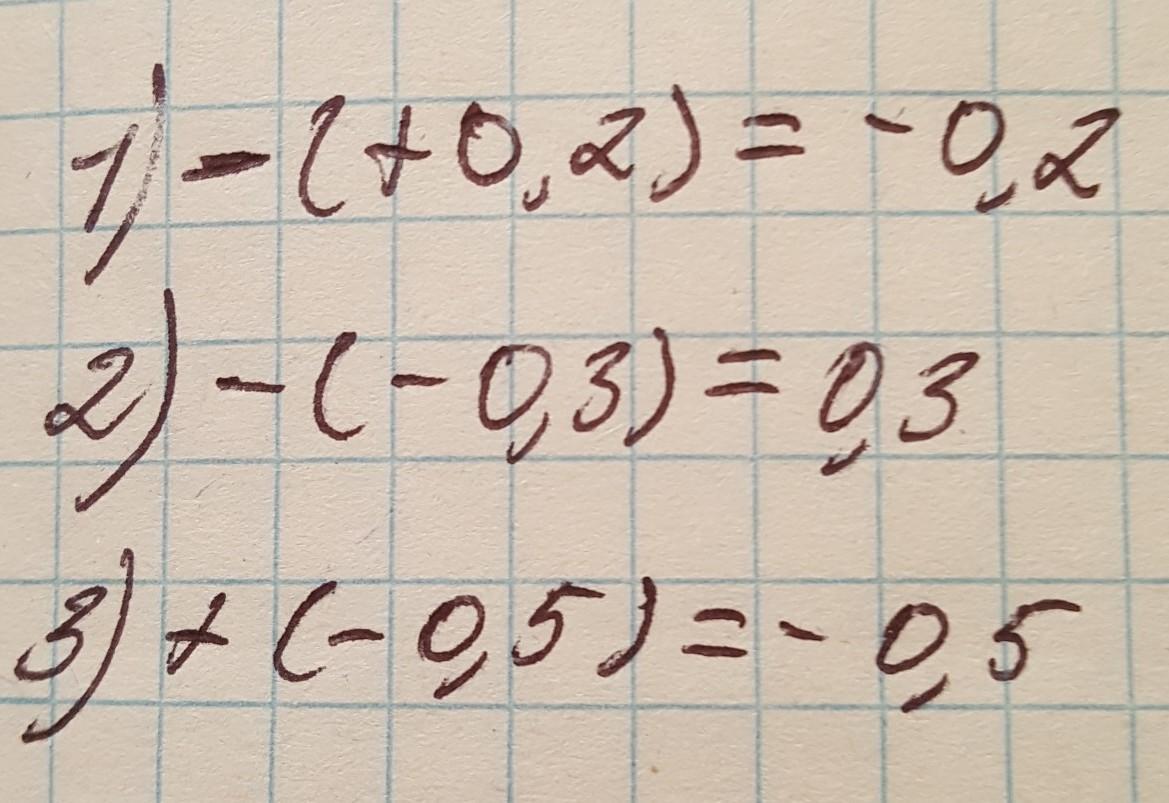 1) - (+0,2) = -0,2
2) - (- 0,3) = 0,3
3) + (- 0,5) = - 0,5